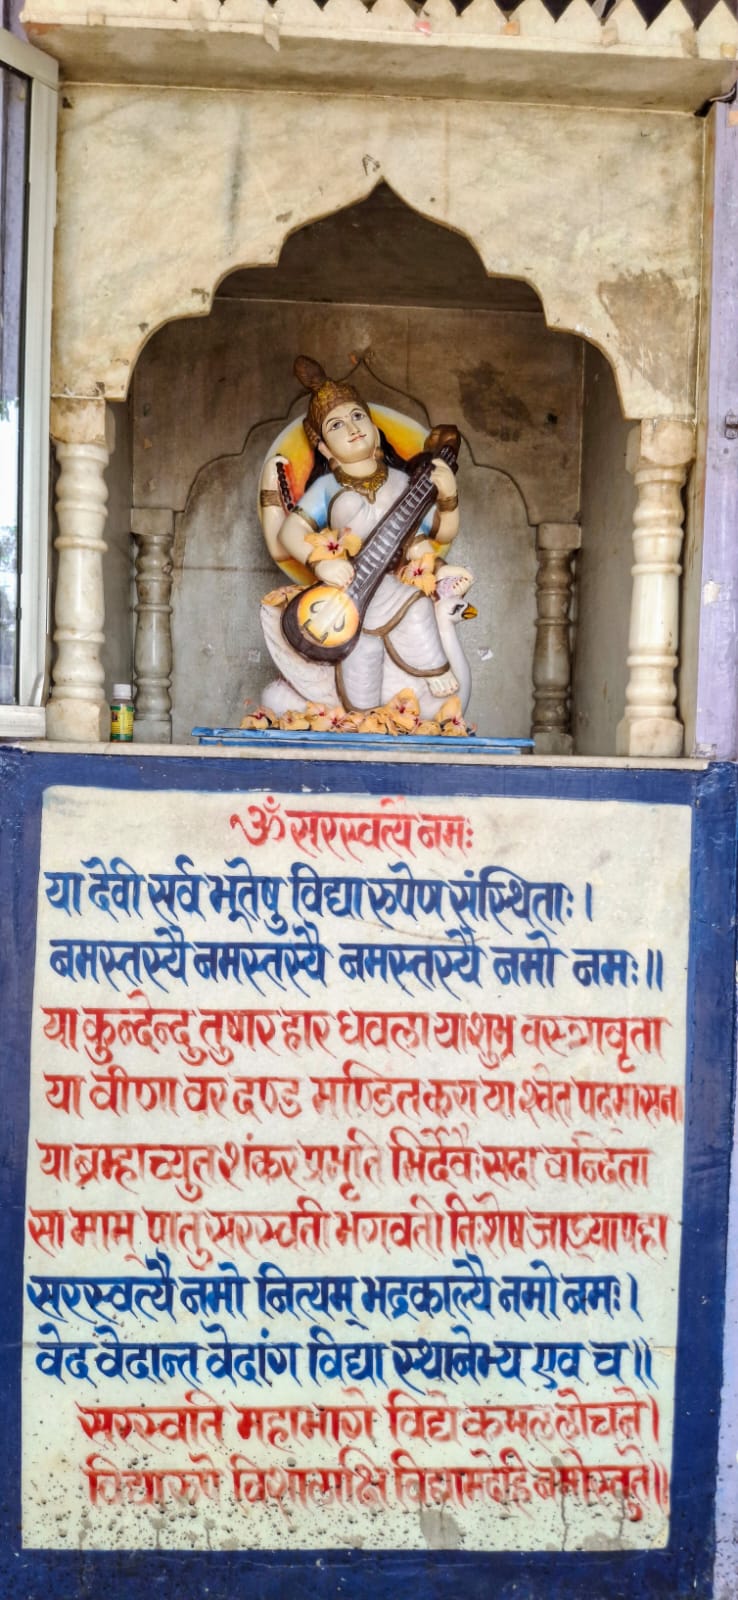 ॐ सरस्वत्यै नमः
या देवी सर्व भूतेषु विद्या रुपेण संस्थिताः।
नमस्तस्यै नमस्तस्यै नमस्तस्यै नमो नमः॥
या कुन्देन्दु तुषार हार धवला या शुभ्र वस्त्रावृता
या वीणा वर दण्ड मण्डित करा या श्वेत पदमासना
या ब्रम्हाच्युत शंकर प्रभृति भिर्देवैः सदा वन्दिता
सा माम् पातु सरस्वती भगवती निःशेष जाड्यापहा
सरस्वत्यै नमो नित्यम् भद्रकाल्यै नमो नमः।
वेद वेदान्त वेदांग विद्या स्थानेभ्य एव च॥
सरस्वति महाभागे विद्ये कमललोचने।
विद्यारुपे विशालाक्षि विद्यामदेहि नमोस्तुते॥